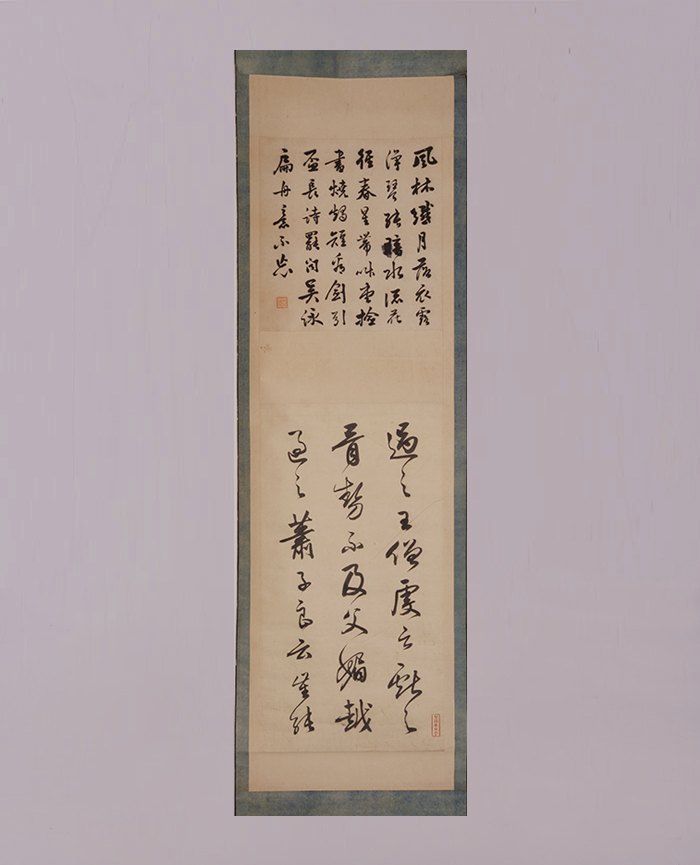 風林纖月落衣露
淨琴張暗水流花
徑春星帶草堂檢
書燒燭短看劍引
盃長詩罷聞吳詠
扁舟意不忘
過之王僧虔云獻之
骨勢不及父媚趣
過之蕭子良云崔張